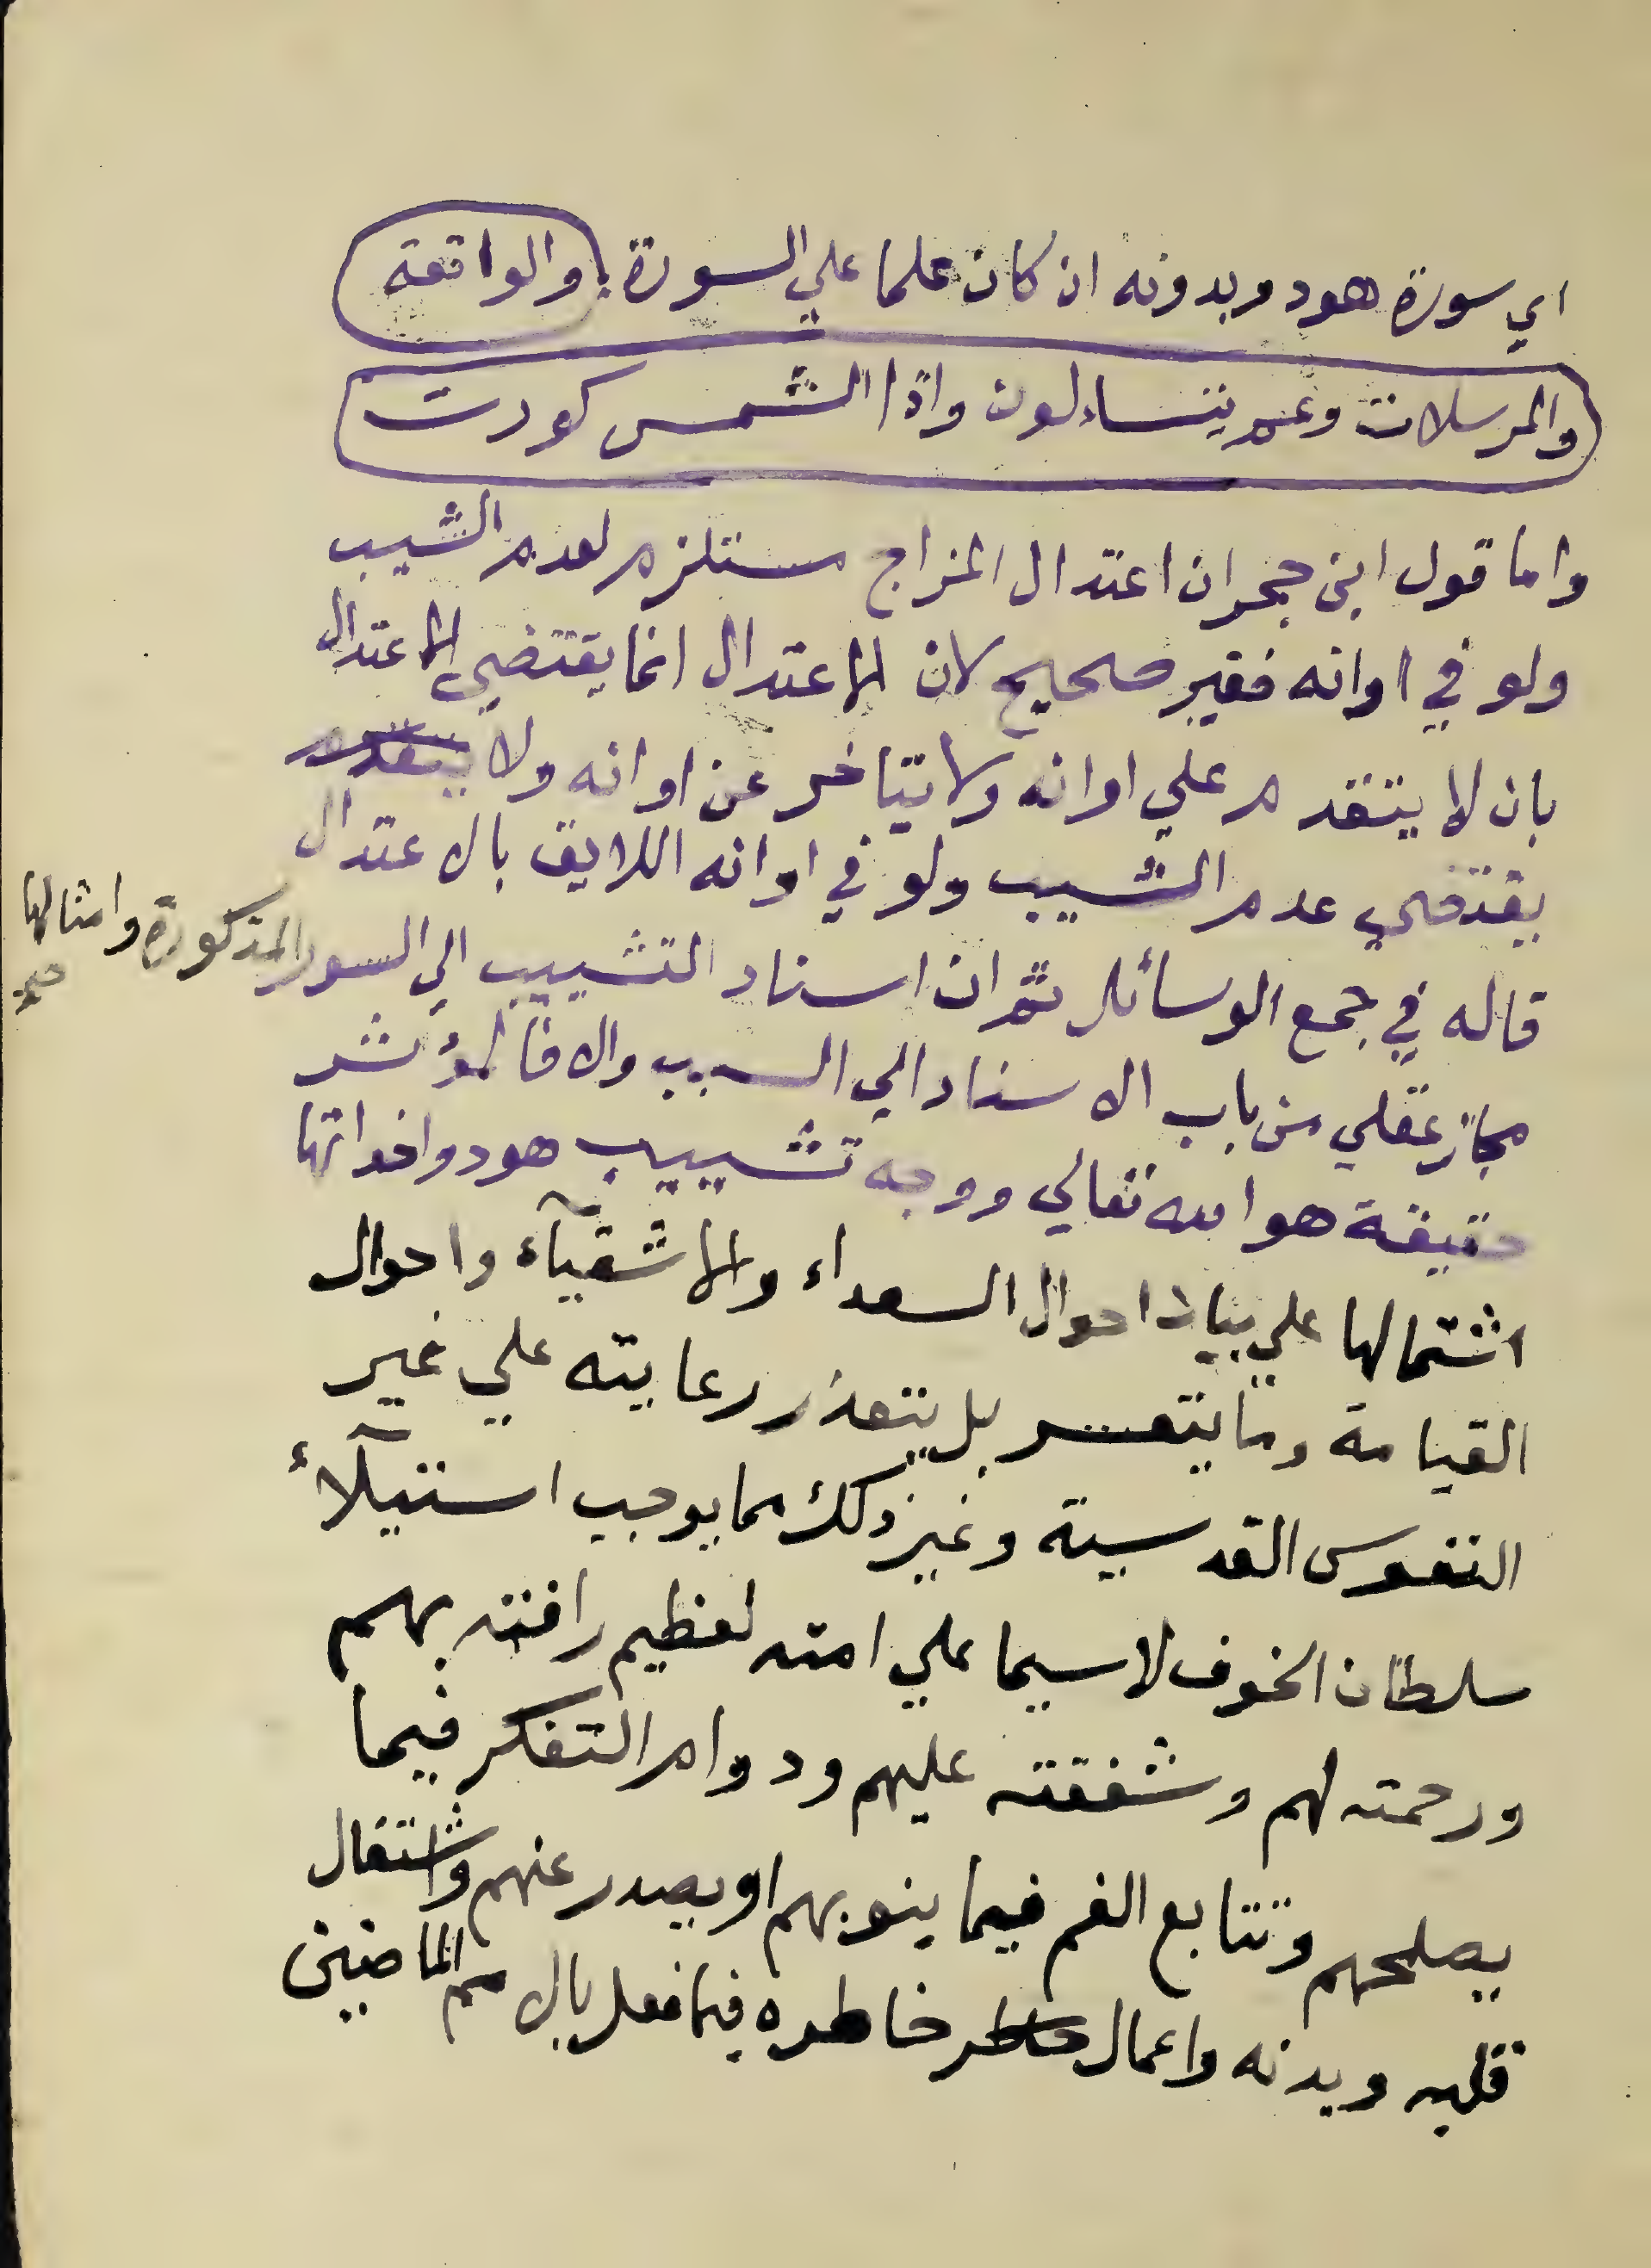 اي سورة هود وبدونه ان كان علما علي السورة والواقعة
والمرسلات وعم يتساءلون واذا الشمس كورت
واما قول ابن حجر ان اعتدال المزاج مستلزم لعدم الشيب
ولو في اوانه فغير صحيح لان الاعتدال انما يقتضي الاعتدال
بان لا يتقدم علي اوانه ولا يتاخر عن اوانه ولا يتقدم
يقتضي عدم الشيب ولو في اوانه اللايق بالاعتدال
قاله في جمع الوسائل ثم ان اسناد التشييب الي السور المذكورة وامثالها
صح
مجاز عقلي من باب الاسناد الي السبب والا فالمؤثر
حقيقة هو الله تعالي ووجه تشييب هود واخواتها
اشتمالها علي بيان احوال السعداء والاشقيآء واحوال
القيامة وما يتعسر بل يتعذر رعايته علي غير
النفوس القدسية وغير ذلك مما يوجب استيلآء
سلطان الخوف لا سيما علي امته لعظيم رافته بهم
ورحمته لهم وشفقته عليهم ودوام التفكر فيما
يصلحهم وتتابع الغم فيما ينوبهم او يصدر عنهم واشتغال
قلبه وبدنه واعمال خاطر خاطره فيما فعل بالامم الماضين